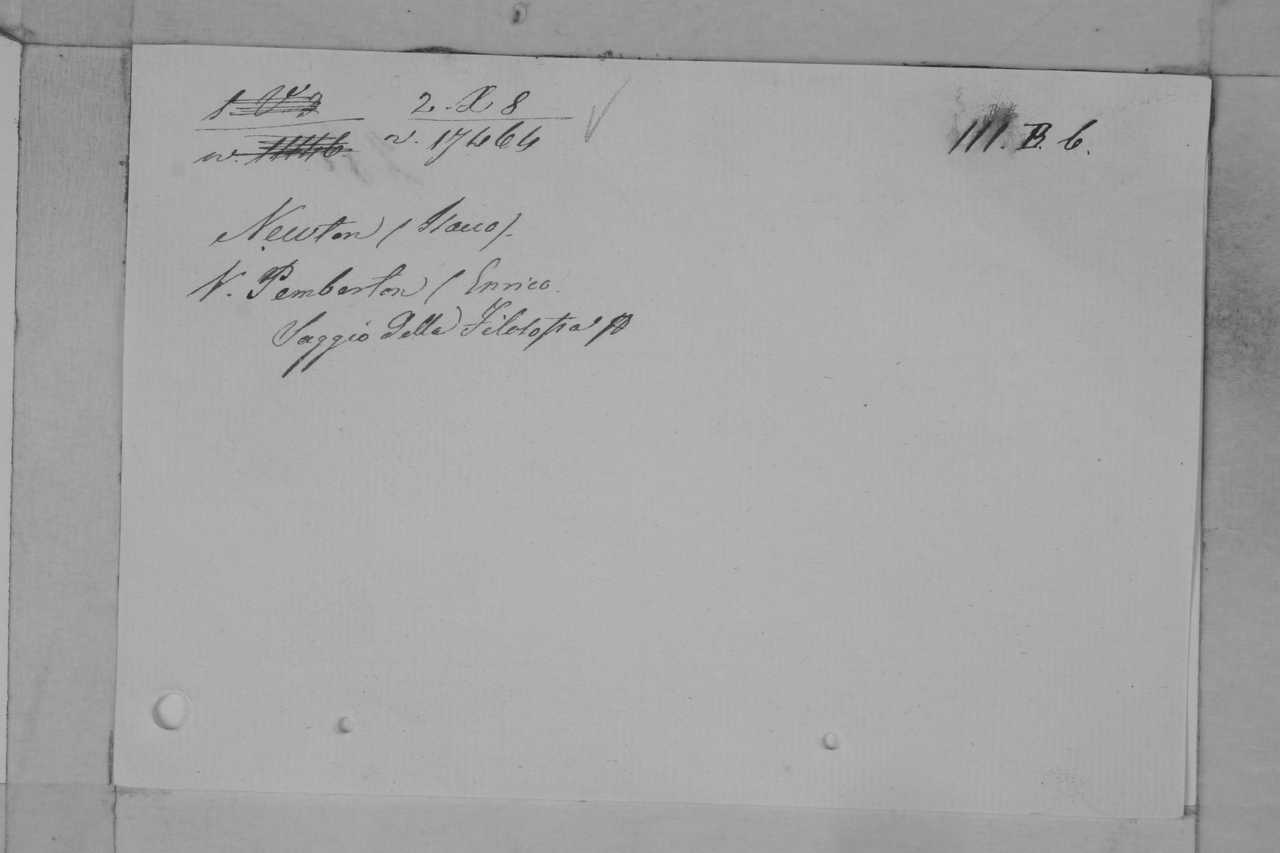 2. X 8
III. B. 6.
n. 17464
Newton (Isacco).
V. Pemberton (Enrico.
Saggio della Filosofia